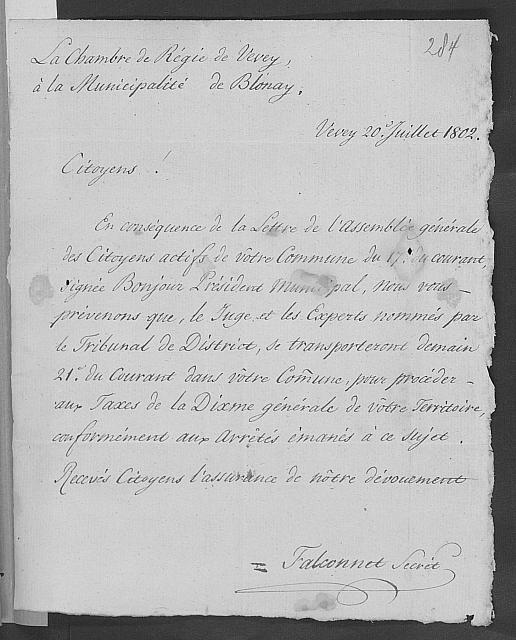 284
La Chambre de Régie de Vevey,
à la Municipalité de Blonay.
Vevey 20.e Juillet 1802.
Citoyens !
En conséquence de la Lettre de l'Assemblée générale
des Citoyens actifs de vôtre Commune du 17.e du courant,
signée Bonjour Président Municipal, nous vous
prévenons que, le Juge et les Experts nommés par
le Tribunal de District, se transporteront demain
21.e du Courant dans vôtre Comune, pour procéder
aux Taxes de la Dixme générale de vôtre Territoire,
conformément aux Arrêtés émanés à ce sujet.
Recevés Citoyens l'assurance de nôtre dévouement
= Falconnet Secrét